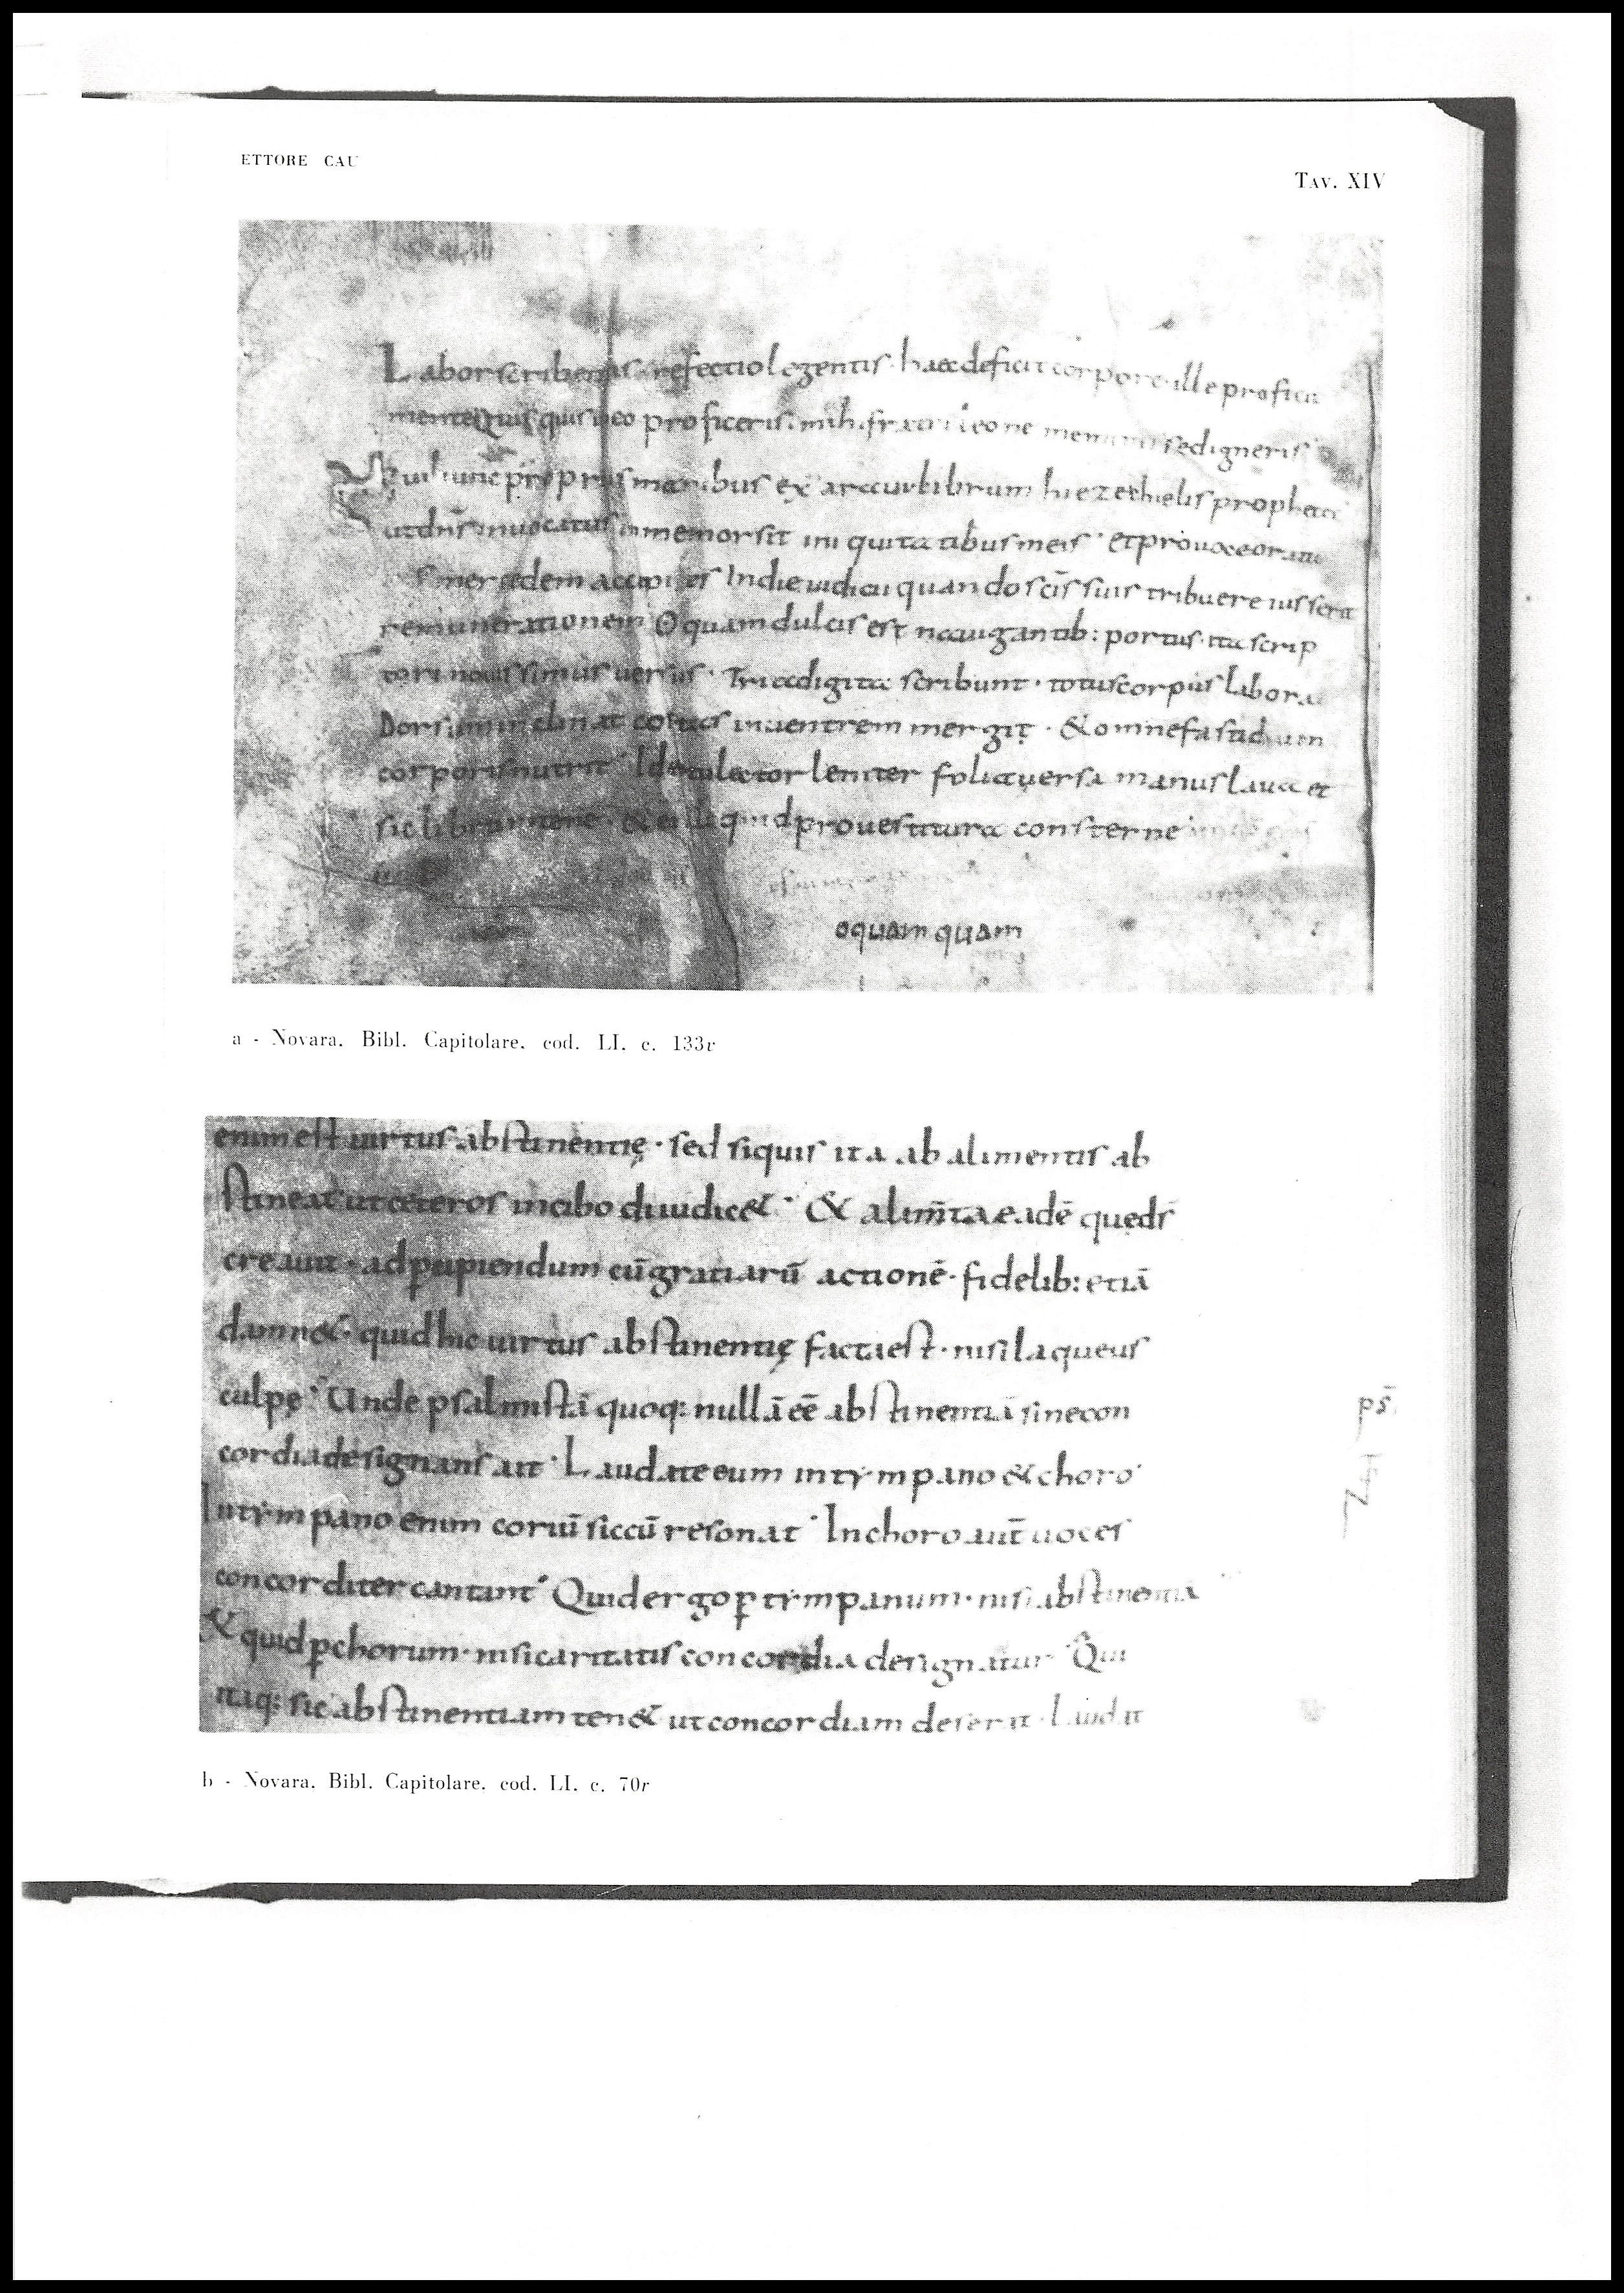 ETTORE CAU
TAV. XIV
Labor scribentis refectio legentis · haec deficit corpore ille profici
mente Quisquis in eo proficeris. mihi ne memin sedigneris
propriis manibus exaravi librum hiezechielis prophetae
ut dn̄s invocatus inmemor sit iniquitatibus meis · et pro
mercedem accipies In die iudicii quando sc̄is suis tribuere iusserit
remunerationem O quam dulcis est navigantib: portus · ita scrip
tori novissimus versus · Tria digita scribunt · totus corpus labora
Dorsum inclinat costas in ventrem mergit · & omne fastidium
corporis nutrit · Ideo tu lector leniter folia versa manus lava et
sic librum tene · & pro vestitura consterne
oquam quam
a - Novara. Bibl. Capitolare. cod. LI. c. 133r
enim est uirtus abstinentię · sed siquis ita ab alimentis ab
stineat ut ceteros in cibo diiudic& · & alim̄ta eadē quę ds̄
creauit · ad p̲cipiendum cū gratiarū actionē · fidelib: etiā
damn& · quid huic uirtus abstinentię facta est · nisi laqueus
culpę · Unde psalmistā quoq: nullā eē abstinentiā sine con
cordia designans ait · Laudate eum in tympano & choro ·
In tympano enim coriū siccū resonat · In choro aut̄ uoces
concorditer cantant · Quid ergo p̲ tympanum · nisi abstinentia
& quid p̲ chorum · nisi caritatis concordia designatur · Qui
itaq: sic abstinentiam ten& ut concordiam deserit · Laudat
ps̄
b - Novara. Bibl. Capitolare. cod. LI. c. 70r